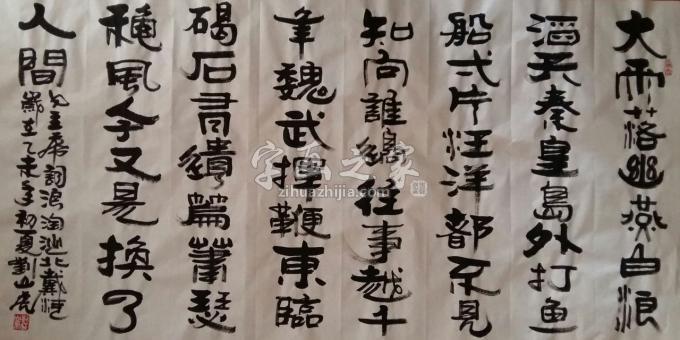 大雨落幽燕白浪
滔天秦皇島外打鱼
船弌片汪洋都不見
知向誰邊往事越千
年魏武揮鞭東臨
碣石有遺篇蕭瑟
穐風今又是換了
人間
毛主席詞浪淘沙北戴河
乙未年初夏劉山
字画之家
zihuazhijia.com